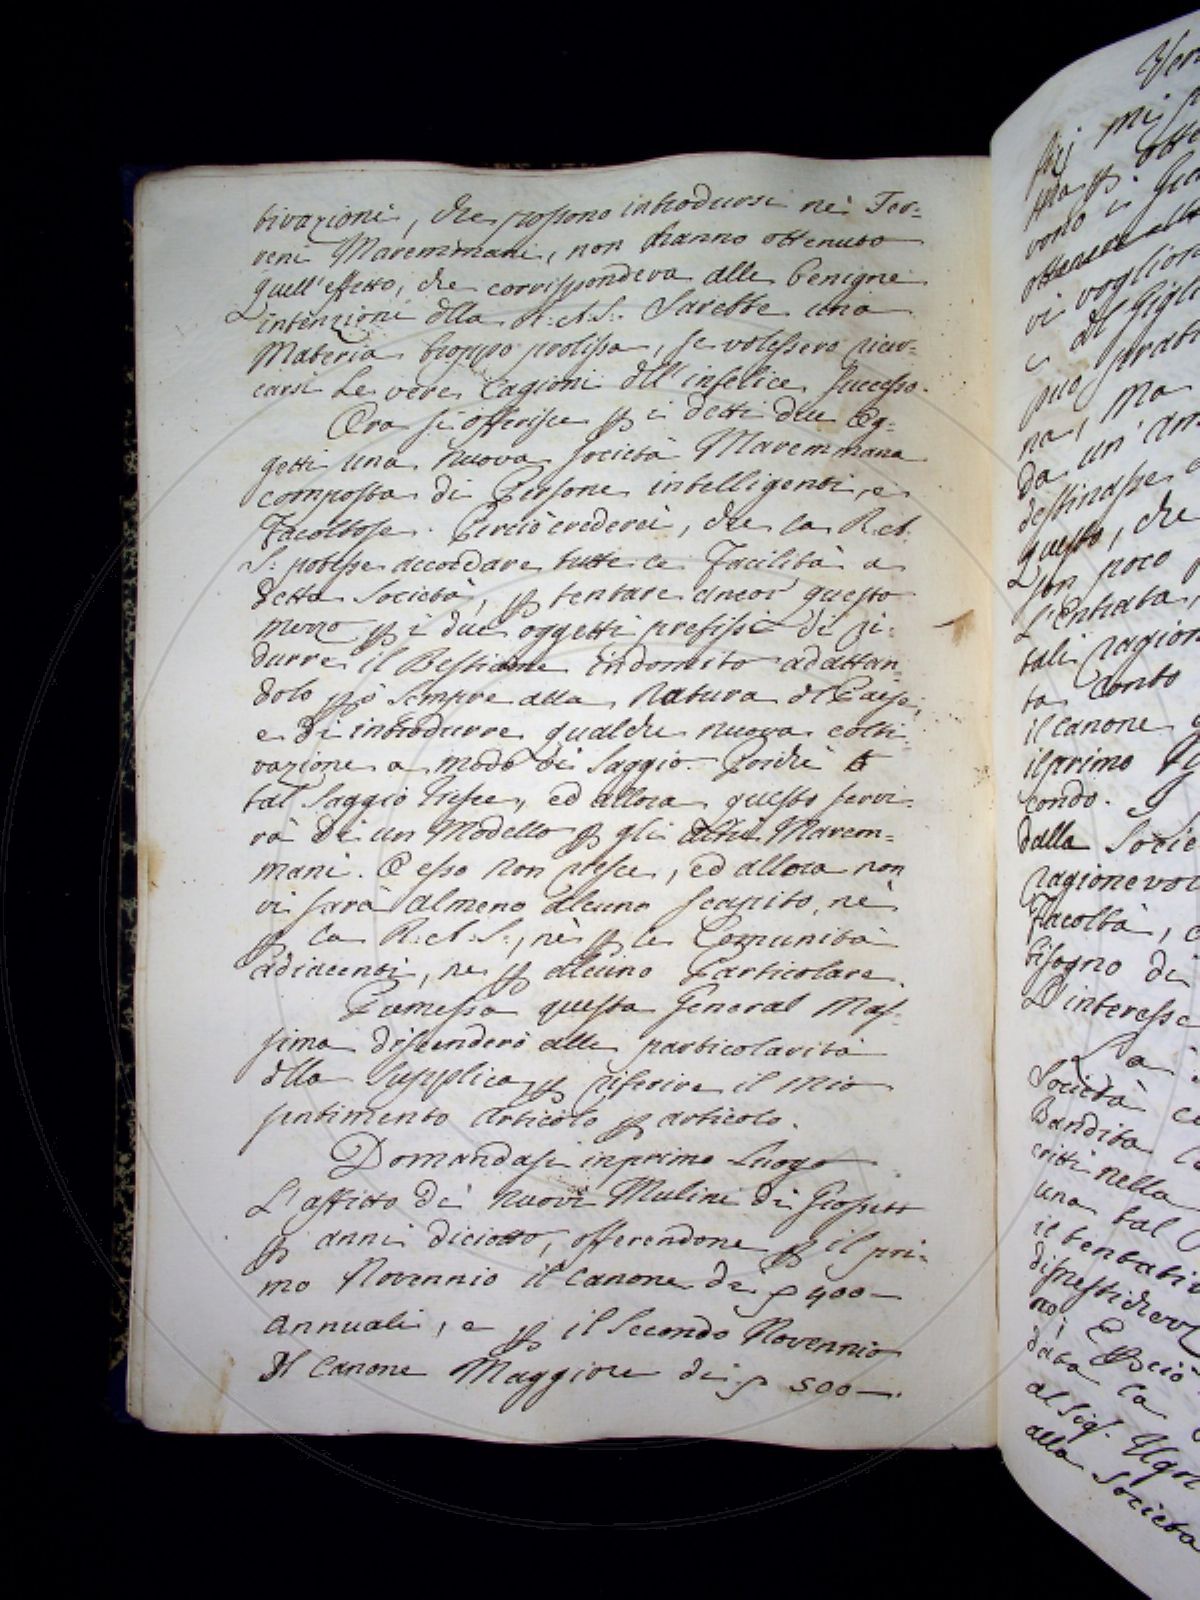 tivazioni, che possono introdursi nei Ter-
reni Maremmani, non hanno ottenuto
quell'effetto, che corrispondeva alle benigne
intenzioni dlla R. A. S. Sarebbe una
Materia troppo prolissa, se volessero ricer-
carsi le vere Cagioni dll'infelice successo.
Ora si offerisce p i detti due Og-
getti una nuova società Maremmana
composta di Persone intelligenti, e
Facoltose. Perciò crederei, che la R. A.
S. potesse accordare tutte le Facilità a
detta Società, p tentare ancor questo
mezzo p i due oggetti prefissi di ri-
durre il Bestiame indomito adattan-
dolo pò sempre alla Natura dl Paese,
e di introdurre qualche nuova colti-
vazione a modo di Saggio. Poichè
tal Saggio riesce, ed allora questo servi-
rà di un Modello p gli altri Marem-
mani. O esso non riesce, ed allora non
vi sarà almeno alcuno scapito, nè
p la R. A. S., nè p le Comunità
adiacenti, ne p alcuno Particolare.
Premessa questa General Mas-
sima discenderò alle particolarità
dlla Supplica p riferire il mio
sentimento articolo p articolo.
Domandasi in primo Luogo
L'affitto dei nuovi Mulini di Grosseto
p anni diciotto, offerendone p il pri-
mo Novennio il Canone di 400 —
annuali, e p il secondo Novennio
Il Canone Maggiore di 500 —.
vi voglion
Dl Gigli
na, ma
da un'
questo, che
pon poco
L'Entrata,
tali ragion
ta Conto
il canone
il primo
condo.
dalla Socie
ragionevol
Facoltà,
bisogno di
L'interesse
La
Società
Bandita
critti nella
una tal
il tentativ
no;
data la
al Sig.
alla Società